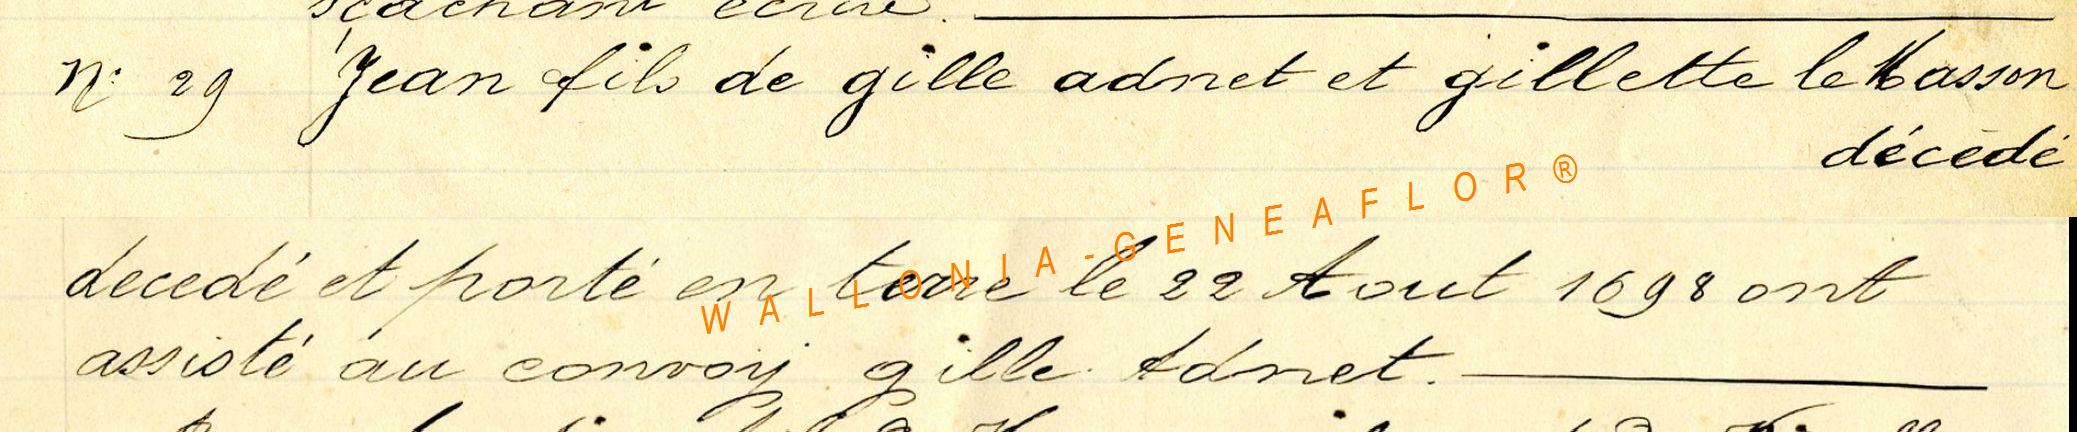 sçachant écrire.
N° 29 Jean fils de gille adnet et gillette le Masson
décédé
decedé et porté en terre le 22 Aout 1698 ont
assisté au convoy gille Adnet.
WALLONIA-GENEAFLOR®